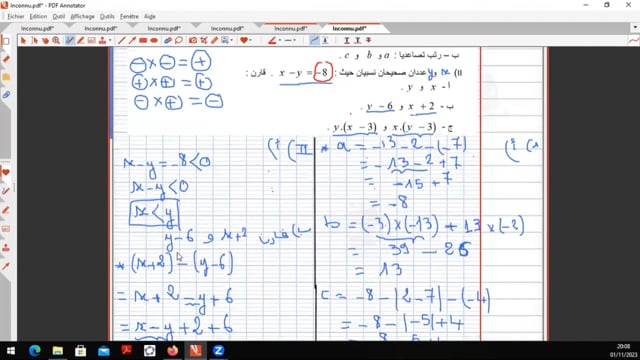 Inconnu.pdf* - PDF Annotator
Fichier Edition Affichage Outils Fenêtre Aide
Inconnu.pdf* Inconnu.pdf* Inconnu.pdf* Inconnu.pdf*
ب – رتب تصاعديا : a و b و c .
II) x و y عددان صحيحان نسبيان حيث : x − y = −8 . قارن :
أ- x و y .
ب- x + 2 و y − 6 .
ج- x.(y − 3) و y.(x − 3) .
⊖ × ⊖ = ⊕
⊕ × ⊕ = ⊕
⊖ × ⊕ = ⊖
II) أ)
x − y = −8 < 0
x − y < 0
x < y
ب) قارن x+2 و y−6
* (x+2) − (y−6)
= x + 2 − y + 6
= x − y + 2 + 6
1) أ)
* a = −13 − 2 − (−7)
= −13 − 2 + 7
= −15 + 7
= −8
b = (−3) × (−13) + 13 × (−2)
= 39 − 26
= 13
c = −8 − |2 − 7| − (−4)
= −8 − |−5| + 4
20:08
01/11/2023